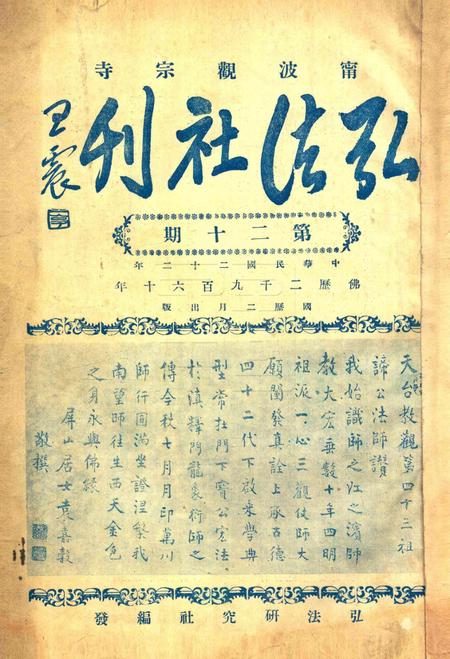 甯波觀宗寺
弘法社刊
王震
第二十期
中華民國二十二年
佛歷二千九百六十年
國歷二月出版
天台教觀第四十三祖
諦公法師讚
我始識師之江之濱師
教大宏垂數十年四明
祖派一心三觀使師大
願闡發真詮上承古德
四十二代下啟來學典
型常在門下寶公宏法
於滇釋門龍象衍師之
傳今秋七月月印萬川
師行圓滿坐證涅槃我
南望師往生西天金色
之身永與佛緣
屏山居士袁嘉穀
敬撰
弘法研究社編發